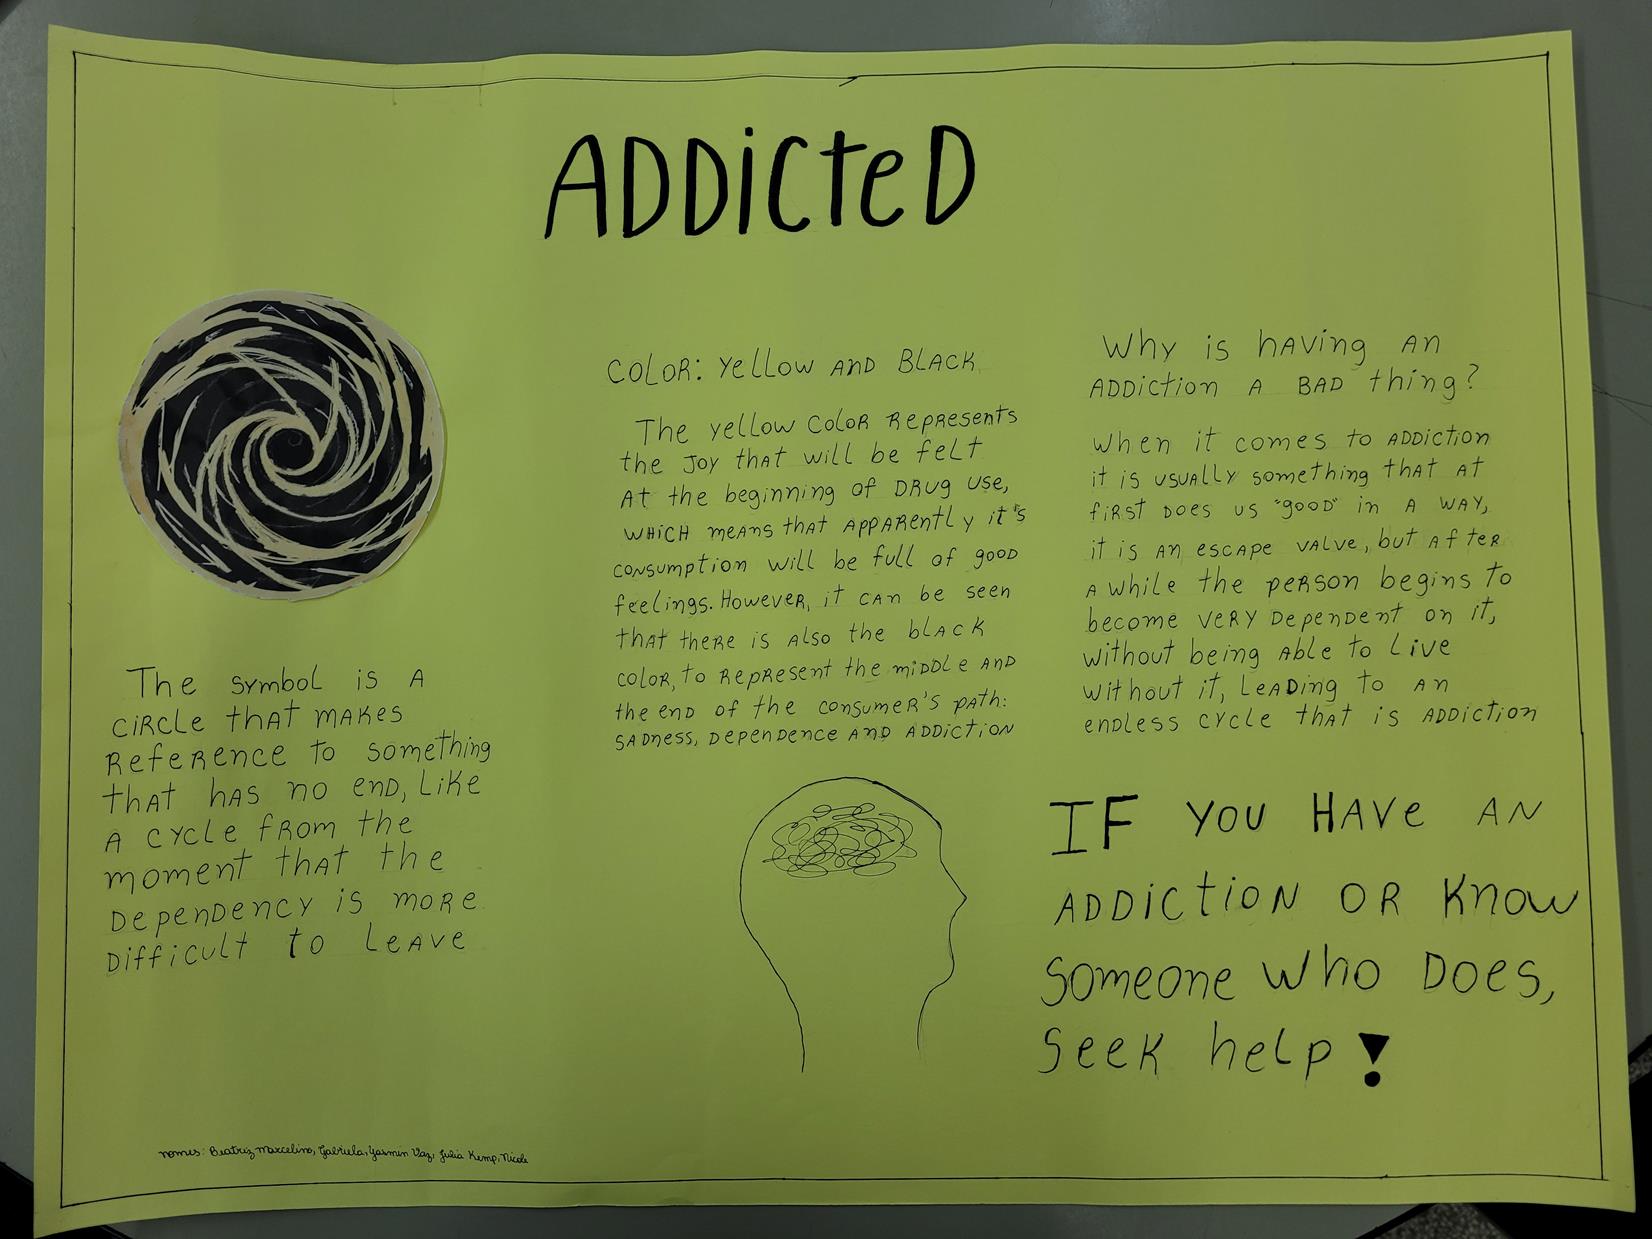 ADDicteD
The symboL is A
ciRcLe thAt mAKes
RefeRence to something
thAt hAs no enD, LiKe
A cycLe fRom the
moment thAt the
DepenDency is moRe
Difficult to LeAve
COLOR: YeLLow AnD BLACK
The yellow CoLoR RepResents
the Joy thAt will be feLt
At the beginning of DRug use,
WHiCH meAns that AppARentLy it's
consumption will be full of gooD
feelings. HoweveR, it cAn be seen
thAt theRe is ALso the bLACK
coLoR, to RepResent the miDDLe AnD
the enD of the consumeR's pAth:
SADness, DepenDence AnD ADDiction
Why is hAving An
ADDiction A BAD thing?
When it comes to ADDiction
it is usuALLy something thAt At
fiRst Does us "gooD" in A wAy,
it is An escApe vALve, but AfteR
A while the peRson begins to
become veRy DepenDent on it,
without being AbLe to Live
without it, LeADing to An
enDLess cycLe thAt is ADDiction
IF you HAVe AN
ADDiCtioN OR Know
Someone Who Does,
SeeK heLp!
nomes: Beatriz Marcelino, Gabriela, Yasmin Vaz, Julia Kemp, Nicole